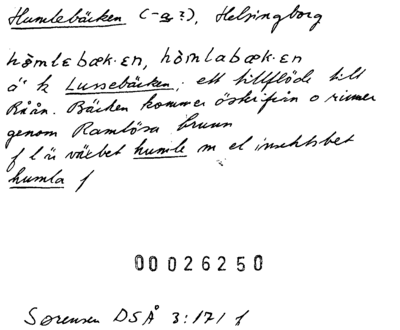 Humlebäcken (-a-?), Helsingborg
hòmlɛbæk·ɛn, hòmlabæk·ɛn
ä k Lussebäcken; ett tillflöde till
Råån. Bäcken kommer österifrån o rinner
genom Ramlösa brunn
f l ä växtbet humle m el insektsbet
humla f
00026250
Sørensen DSÅ 3:171 f